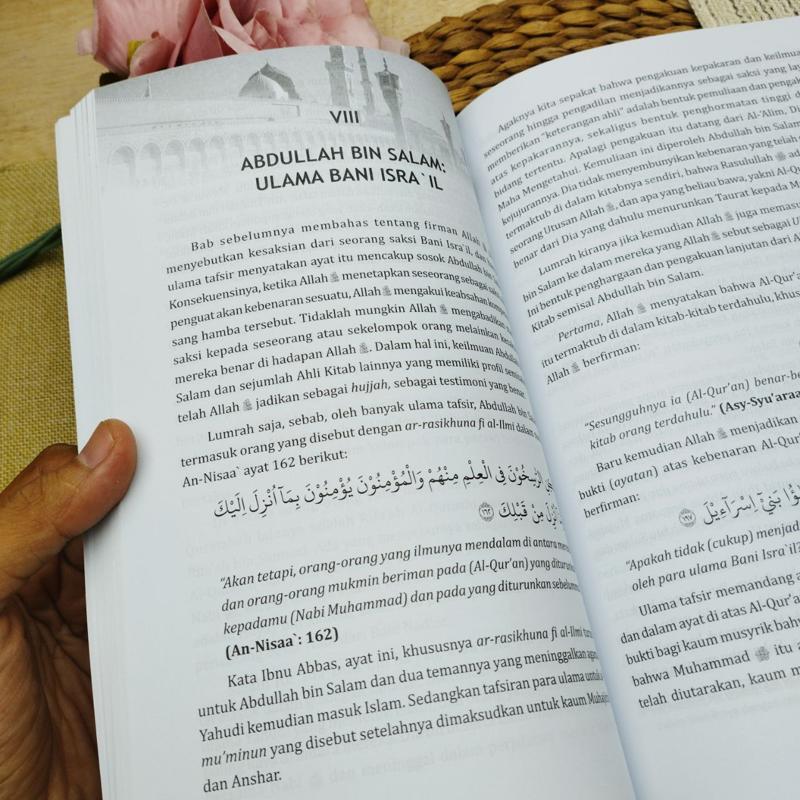 VIII
ABDULLAH BIN SALAM:
ULAMA BANI ISRA`IL
Bab sebelumnya membahas tentang firman Allah ﷻ
menyebutkan kesaksian dari seorang saksi Bani Isra`il, dan
ulama tafsir menyatakan ayat itu mencakup sosok Abdullah bin
Konsekuensinya, ketika Allah ﷻ menetapkan seseorang sebagai
penguat akan kebenaran sesuatu, Allah ﷻ mengakui keabsahan
sang hamba tersebut. Tidaklah mungkin Allah ﷻ mengabadikan
saksi kepada seseorang atau sekelompok orang melainkan
mereka benar di hadapan Allah ﷻ. Dalam hal ini, keilmuan Abdullah
Salam dan sejumlah Ahli Kitab lainnya yang memiliki profil
telah Allah ﷻ jadikan sebagai hujjah, sebagai testimoni yang benar.
Lumrah saja, sebab, oleh banyak ulama tafsir, Abdullah bin
termasuk orang yang disebut dengan ar-rasikhuna fi al-Ilmi dalam
An-Nisaa` ayat 162 berikut:
الرّٰسِخُوْنَ فِى الْعِلْمِ مِنْهُمْ وَالْمُؤْمِنُوْنَ يُؤْمِنُوْنَ بِمَآ اُنْزِلَ اِلَيْكَ
اُنْزِلَ مِنْ قَبْلِكَ ۝١٦٢
“Akan tetapi, orang-orang yang ilmunya mendalam di antara
dan orang-orang mukmin beriman pada (Al-Qur’an) yang
kepadamu (Nabi Muhammad) dan pada yang diturunkan
(An-Nisaa`: 162)
Kata Ibnu Abbas, ayat ini, khususnya ar-rasikhuna fi al-Ilmi
untuk Abdullah bin Salam dan dua temannya yang meninggalkan
Yahudi kemudian masuk Islam. Sedangkan tafsiran para ulama
mu’minun yang disebut setelahnya dimaksudkan untuk kaum
dan Anshar.
Agaknya kita sepakat bahwa pengakuan kepakaran dan
seseorang hingga pengadilan menjadikannya sebagai saksi yang
memberikan “keterangan ahli” adalah bentuk pemuliaan dan
atas kepakarannya, sekaligus bentuk penghormatan tinggi
bidang tertentu. Apalagi pengakuan itu datang dari Al-‘Alim,
Maha Mengetahui. Kemuliaan ini diperoleh Abdullah bin Salam
kejujurannya. Dia tidak menyembunyikan kebenaran yang telah
termaktub di dalam kitabnya sendiri, bahwa Rasulullah ﷺ
seorang Utusan Allah ﷻ, dan apa yang beliau bawa, yakni
benar dari Dia yang dahulu menurunkan Taurat kepada
Lumrah kiranya jika kemudian Allah ﷻ juga
bin Salam ke dalam mereka yang Allah ﷻ sebut sebagai
Ini bentuk penghargaan dan pengakuan lanjutan dari
Kitab semisal Abdullah bin Salam.
Pertama, Allah ﷻ menyatakan bahwa
itu termaktub di dalam kitab-kitab terdahulu,
Allah ﷻ berfirman:
“Sesungguhnya ia (Al-Qur’an)
kitab orang terdahulu.”
Baru kemudian Allah ﷻ menjadikan
bukti (ayatan) atas kebenaran
berfirman:
بَنِيْٓ اِسْرَآءِيْلَ ۝١٩٧
“Apakah tidak (cukup)
oleh para ulama Bani Isra`il
Ulama tafsir memandang
dan dalam ayat di atas
bukti bagi kaum musyrik
bahwa Muhammad ﷺ itu
telah diutarakan, kaum